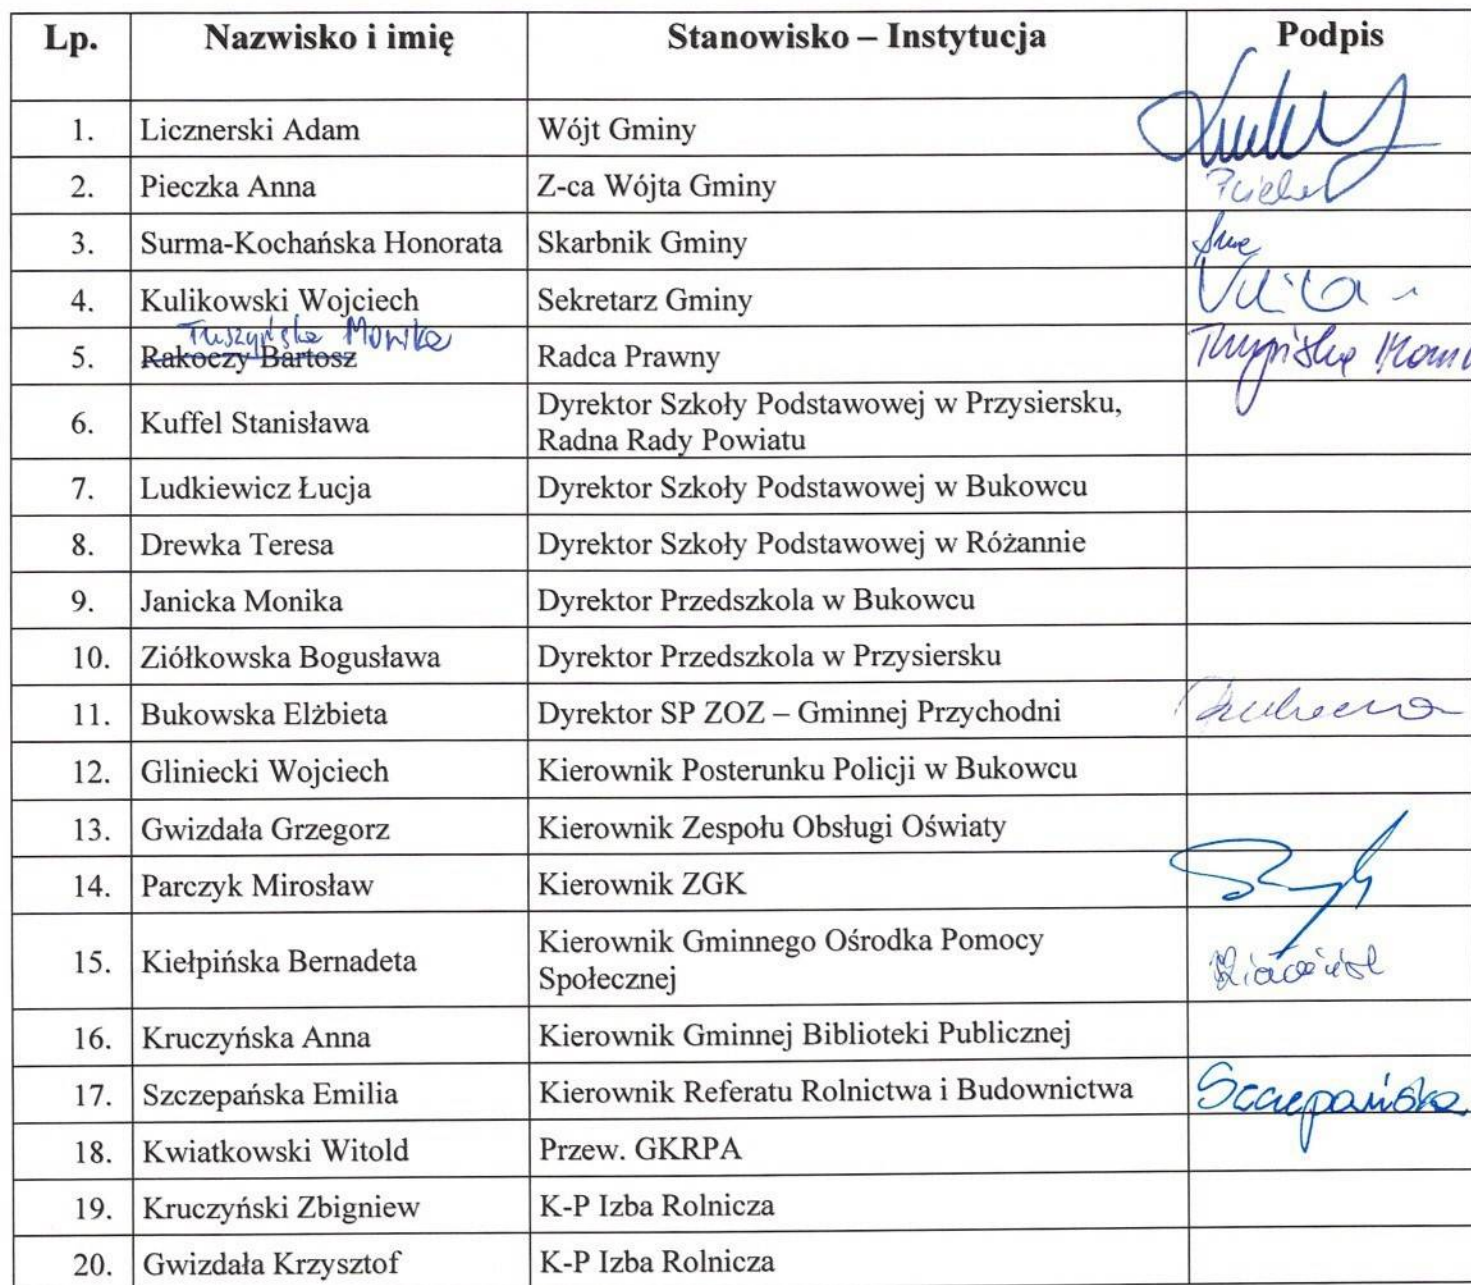 Lp. Nazwisko i imię Stanowisko – Instytucja Podpis
1. Licznerski Adam Wójt Gminy
2. Pieczka Anna Z-ca Wójta Gminy
3. Surma-Kochańska Honorata Skarbnik Gminy
4. Kulikowski Wojciech Sekretarz Gminy
Monika
5. Rakoczy Bartosz Radca Prawny
6. Kuffel Stanisława Dyrektor Szkoły Podstawowej w Przysiersku,
Radna Rady Powiatu
7. Ludkiewicz Łucja Dyrektor Szkoły Podstawowej w Bukowcu
8. Drewka Teresa Dyrektor Szkoły Podstawowej w Różannie
9. Janicka Monika Dyrektor Przedszkola w Bukowcu
10. Ziółkowska Bogusława Dyrektor Przedszkola w Przysiersku
11. Bukowska Elżbieta Dyrektor SP ZOZ – Gminnej Przychodni
12. Gliniecki Wojciech Kierownik Posterunku Policji w Bukowcu
13. Gwizdała Grzegorz Kierownik Zespołu Obsługi Oświaty
14. Parczyk Mirosław Kierownik ZGK
15. Kiełpińska Bernadeta Kierownik Gminnego Ośrodka Pomocy
Społecznej
16. Kruczyńska Anna Kierownik Gminnej Biblioteki Publicznej
17. Szczepańska Emilia Kierownik Referatu Rolnictwa i Budownictwa Szczepańska
18. Kwiatkowski Witold Przew. GKRPA
19. Kruczyński Zbigniew K-P Izba Rolnicza
20. Gwizdała Krzysztof K-P Izba Rolnicza